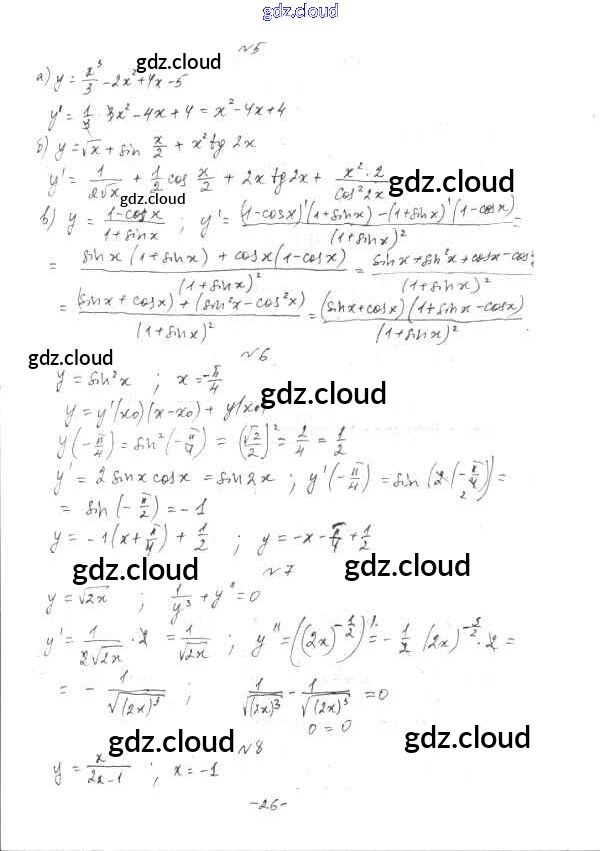 gdz.cloud
№5
а) y = x³/3 - 2x² + 4x - 5
gdz.cloud
y' = 1/3 · 3x² - 4x + 4 = x² - 4x + 4
б) y = √x + sin x/2 + x² tg 2x
y' = 1/(2√x) + 1/2 cos x/2 + 2x tg 2x + x²·2/cos² 2x
gdz.cloud
в) y = (1-cos x)/(1+sin x) ; y' = ((1-cos x)'(1+sin x) - (1+sin x)'(1-cos x))/(1+sin x)² =
gdz.cloud
= (sin x (1+sin x) + cos x (1-cos x))/(1+sin x)² = (sin x + sin² x + cos x - cos²/(1+sin x)²
= ((sin x + cos x) + (sin² x - cos² x))/(1+sin x)² = (sin x + cos x)(1+sin x - cos x)/(1+sin x)²
gdz.cloud
№6
y = sin² x ; x = -π/4
gdz.cloud
y = y'(x₀)(x-x₀) + y(x₀)
y(-π/4) = sin²(-π/4) = (√2/2)² = 2/4 = 1/2
y' = 2 sin x cos x = sin 2x ; y'(-π/4) = sin (2(-π/4)) =
= sin(-π/2) = -1
y = -1(x + π/4) + 1/2 ; y = -x - π/4 + 1/2
gdz.cloud
gdz.cloud
№7
y = √2x ; 1/y³ + y'' = 0
y' = 1/(2√2x) · 2 = 1/√2x ; y'' = ((2x)^(-1/2))' = -1/2 (2x)^(-3/2) · 2 =
= - 1/√(2x)³ ; 1/√(2x)³ - 1/√(2x)³ = 0
0 = 0
gdz.cloud
gdz.cloud
№8
y = x/(2x-1) ; x = -1
-26-